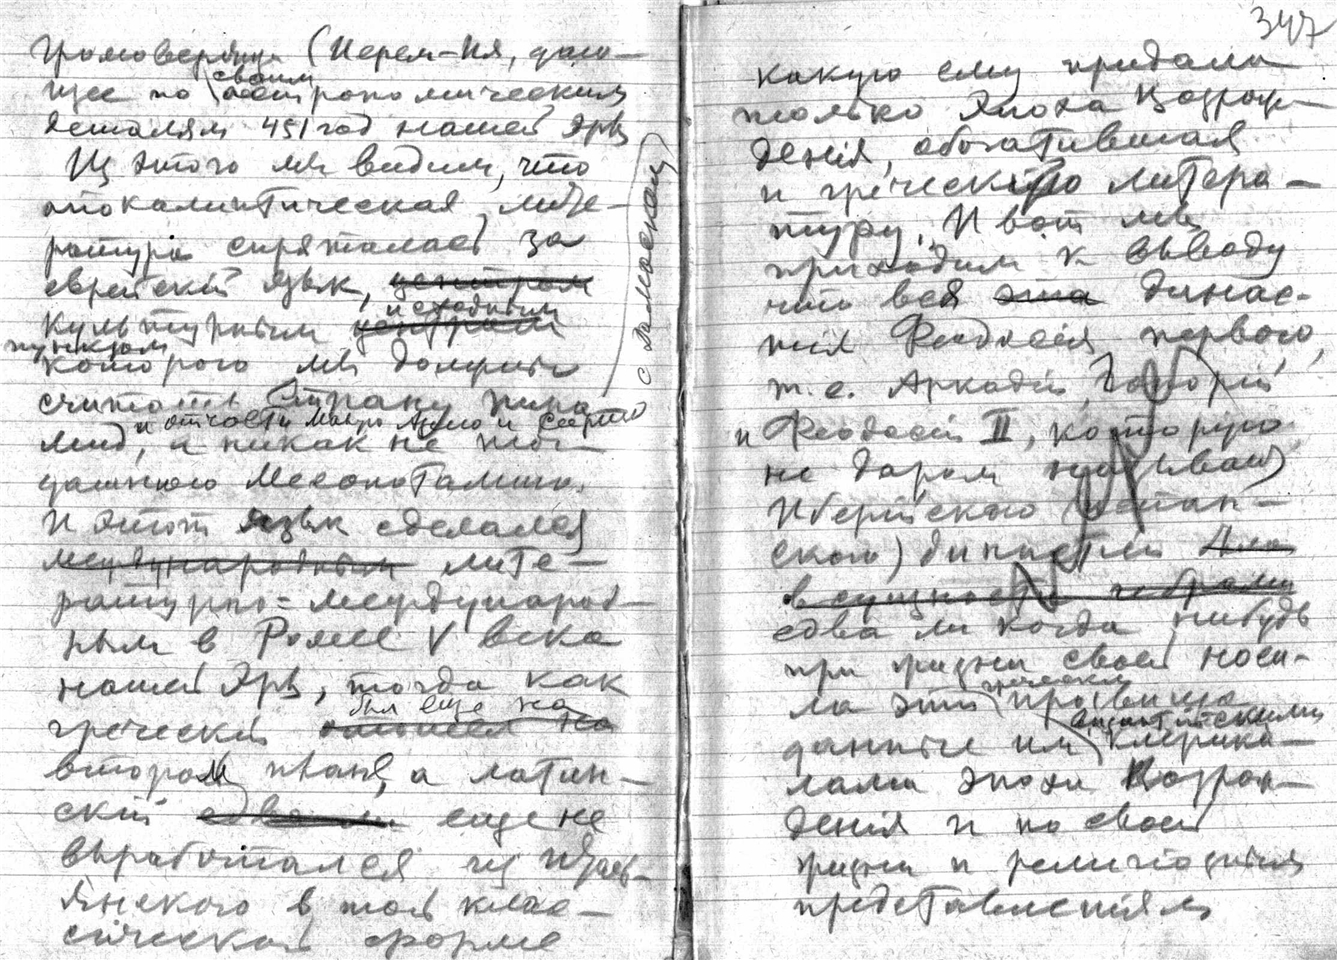 громоверяща (Иерем-Ия, даю-
щее по своим астрономическим
деталям 451 год нашей эры
Из этого мы видим, что
апокалиптическая лите-
ратура спряталась за
еврейскій язык, центром
культурным исходным центром
пунктом которого мы должны
считать Страну пира-
и отчасти Малую Азию и Сирію
мид, а никак не
Месопотамию.
И этот язык сделался
международным лите-
ратурно-международ-
ным в Роме V века
нашей эры, тогда как
греческій был еще на
втором плане, а латин-
скій едва ли еще не
выработался из Италь-
янского в той клас-
сической форме
с Палмоскому)
347
какую ему придала
только Эпоха Возрож-
денія, обогатившая
и греческую литера-
туру. И вот мы
приходим к выводу
что вся эта динас-
тія Феодосія первого,
т.е. Аркадій, Гонорій
и Феодосій II, которую
не даром называют
Иберійского (Испан-
ского) династіи
в сущности
едва ли когда нибудь
при жизни своей носи-
ла эти греческія прозвища
данные им византійскими клерика-
лами эпохи Возрож-
денія и по своей
жизни и религіозным
представленіям